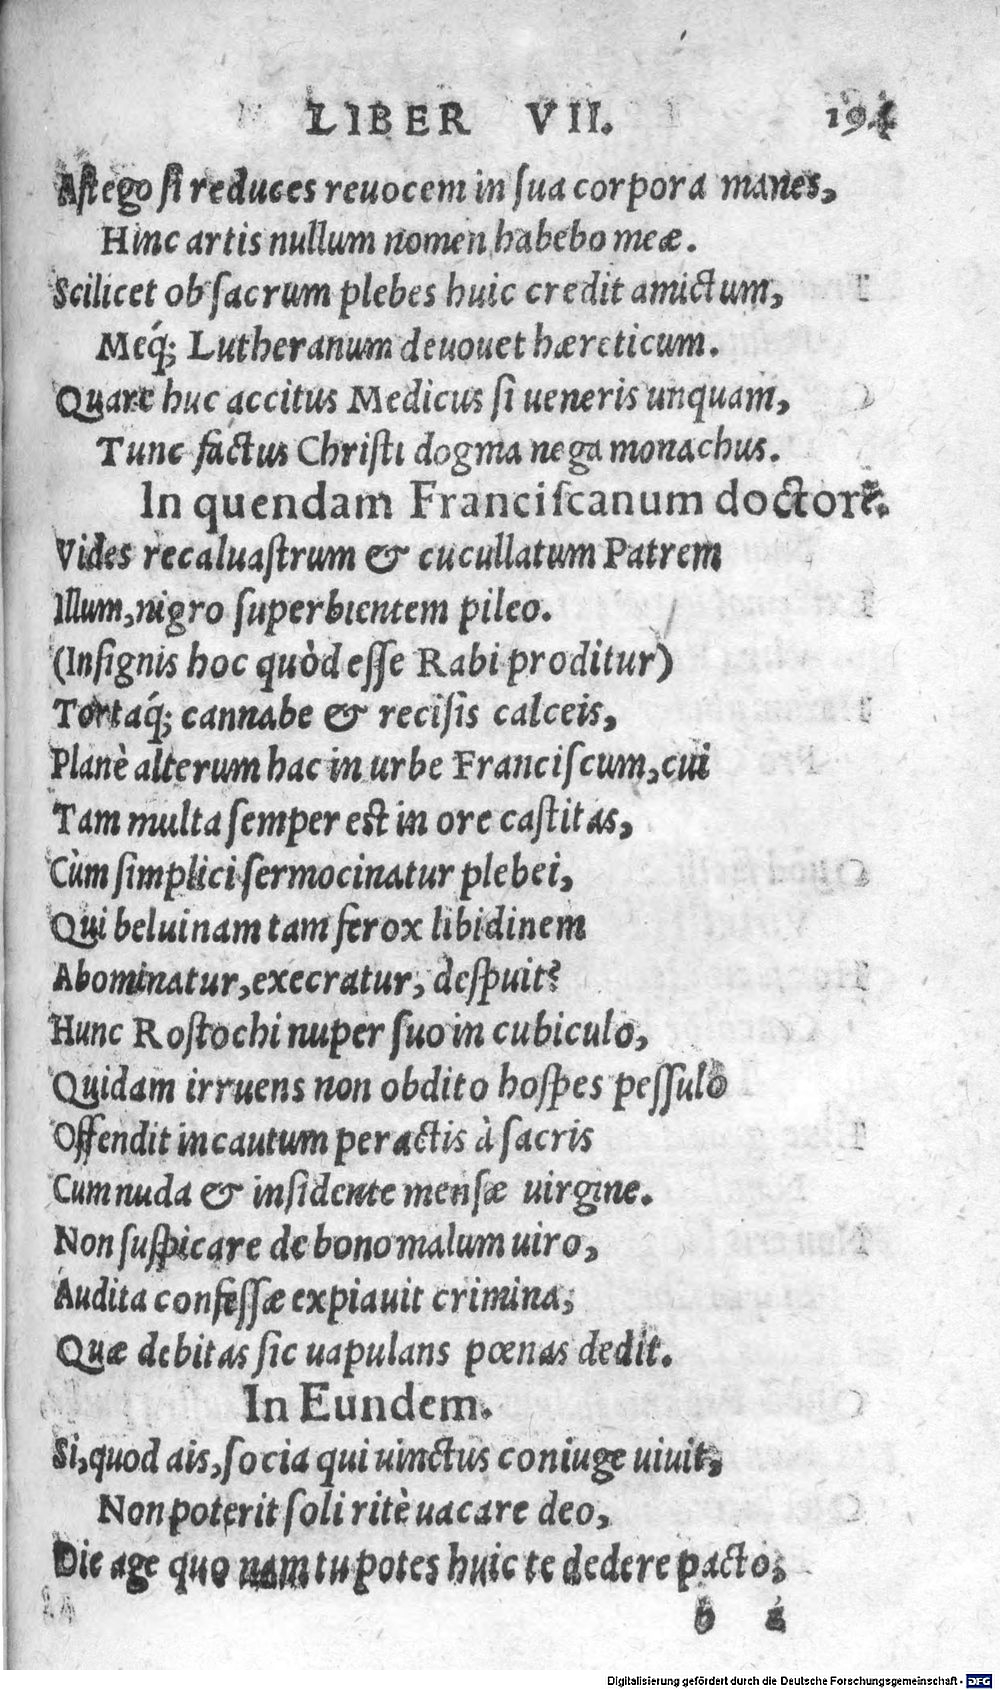 LIBER VII. 194
Aſt ego ſi reduces reuocem in ſua corpora manes,
Hinc artis nullum nomen habebo meæ.
Scilicet ob ſacrum plebes huic credit amictum,
Meq́; Lutheranum deuouet hæreticum.
Quare huc accitus Medicus ſi ueneris unquam,
Tunc factus Chriſti dogma nega monachus.
In quendam Franciſcanum doctorē.
Vides recaluaſtrum & cucullatum Patrem
Illum, nigro ſuperbientem pileo.
(Inſignis hoc quòd eſſe Rabi proditur)
Tortaq́; cannabe & reciſis calceis,
Planè alterum hac in urbe Franciſcum, cui
Tam multa ſemper eſt in ore caſtitas,
Cùm ſimplici ſermocinatur plebei,
Qui beluinam tam ferox libidinem
Abominatur, execratur, deſpuit?
Hunc Roſtochi nuper ſuo in cubiculo,
Quidam irruens non obdito hoſpes peſſulo
Offendit incautum peractis à ſacris
Cum nuda & inſidente menſæ uirgine.
Non ſuſpicare de bono malum uiro,
Audita confeſſæ expiauit crimina,
Quæ debitas ſic uapulans pœnas dedit.
In Eundem.
Si, quod ais, ſocia qui uinctus coniuge uiuit,
Non poterit ſoli ritè uacare deo,
Dic age quo nam tu potes huic te dedere pacto,
b 2
Digitalisierung gefördert durch die Deutsche Forschungsgemeinschaft - DFG